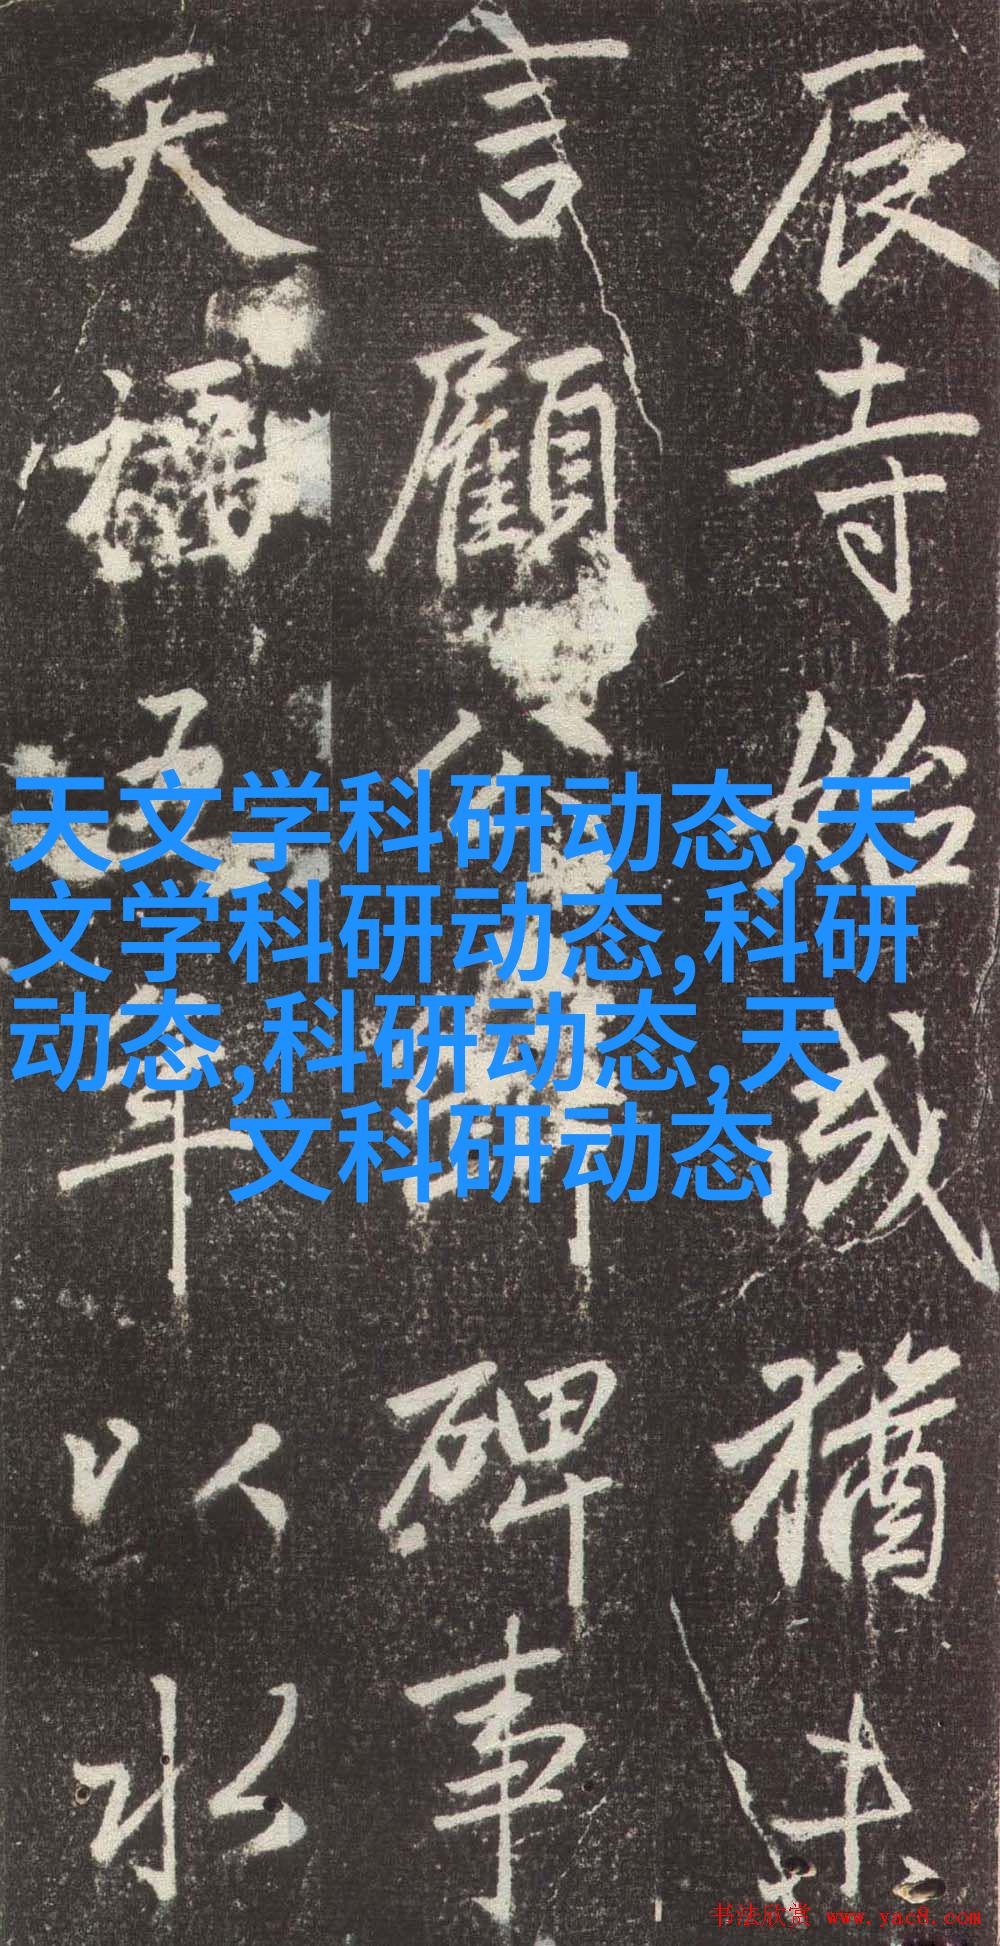 辰寺始成猶未
言顧
碑事
天福五年以水
天文学科研动态,天
文学科研动态,科研
动态,科研动态,天
文科研动态
书法欣赏 www.yac8.com